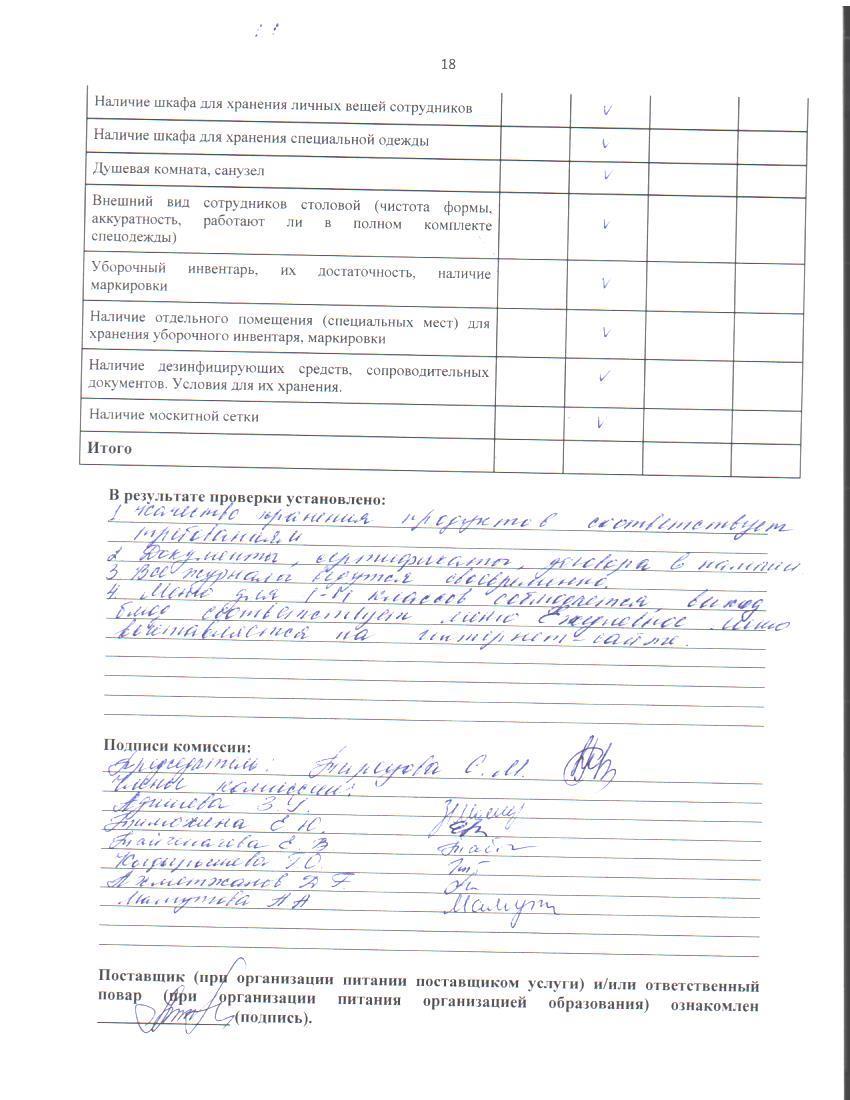 18
Наличие шкафа для хранения личных вещей сотрудников v
Наличие шкафа для хранения специальной одежды v
Душевая комната, санузел v
Внешний вид сотрудников столовой (чистота формы,
аккуратность, работают ли в полном комплекте v
спецодежды)
Уборочный инвентарь, их достаточность, наличие v
маркировки
Наличие отдельного помещения (специальных мест) для v
хранения уборочного инвентаря, маркировки
Наличие дезинфицирующих средств, сопроводительных v
документов. Условия для их хранения.
Наличие москитной сетки v
Итого
В результате проверки установлено:
1 Качество хранения продуктов соответствует
требованиям
2 Документы, сертификаты, договора в наличии
3 Все журналы ведутся своевременно
4. Меню для классов соблюдается, выход
блюд соответствует меню Ежедневное меню
выставляется на интернет-сайте.
Подписи комиссии:
Председатель: С. М.
Члены комиссии:
Адишева З. У.
Тимохина Е Ю.
Е. В
Г О.
Ахметжанов Д Г
Мамутова А А Мамут
Поставщик (при организации питании поставщиком услуги) и/или ответственный
повар (при организации питания организацией образования) ознакомлен
(подпись).